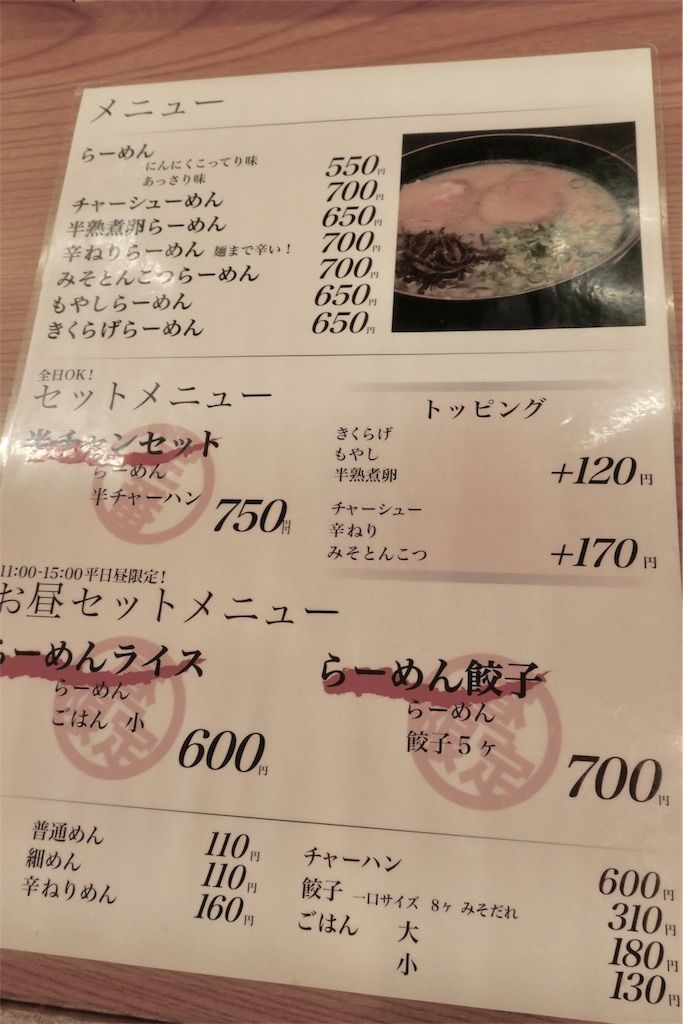 メニュー
らーめん
にんにくこってり味
あっさり味 550円
チャーシューめん 700円
半熟煮卵らーめん 650円
辛ねりらーめん 麺まで辛い! 700円
みそとんこつらーめん 700円
もやしらーめん 650円
きくらげらーめん 650円
全日OK!
セットメニュー
半チャンセット
らーめん
半チャーハン 750円
トッピング
きくらげ
もやし
半熟煮卵 +120円
チャーシュー
辛ねり
みそとんこつ +170円
11:00-15:00平日昼限定!
お昼セットメニュー
らーめんライス
らーめん
ごはん 小 600円
らーめん餃子
らーめん
餃子5ヶ 700円
普通めん 110円
細めん 110円
辛ねりめん 160円
チャーハン 600円
餃子 一口サイズ 8ヶ みそだれ 310円
ごはん 大 180円
小 130円